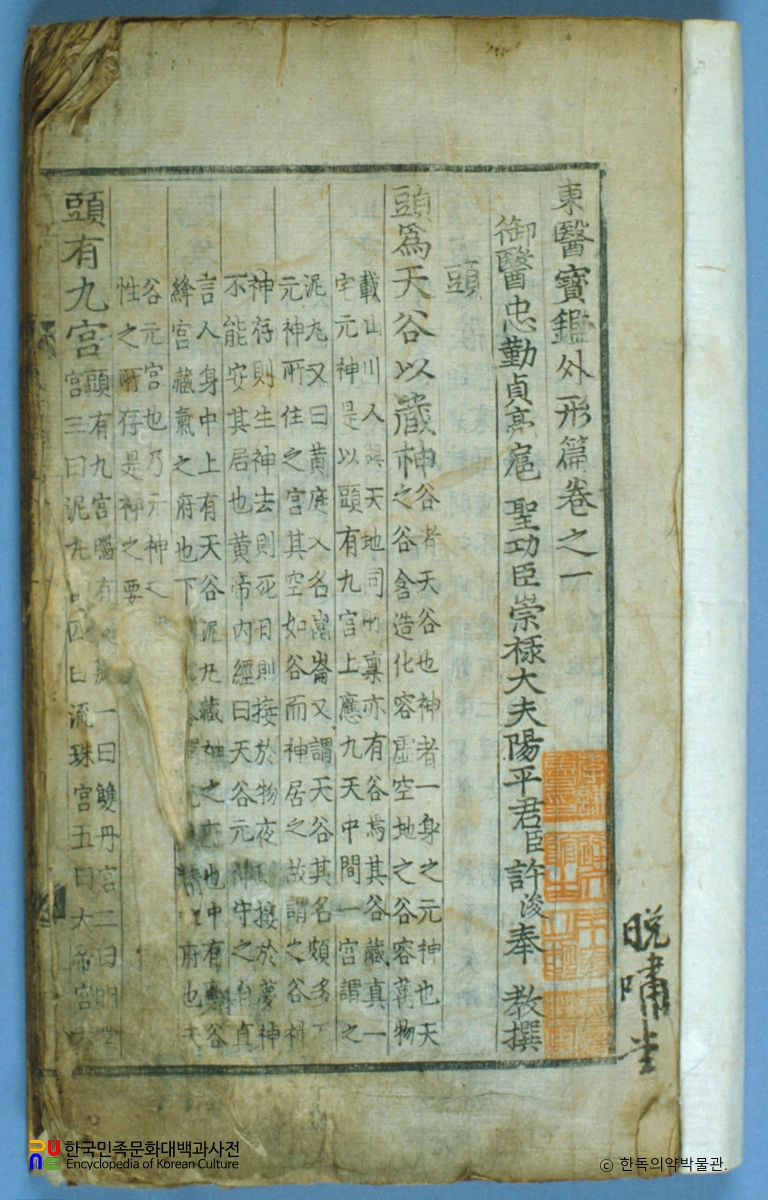 東醫寶鑑外形篇卷之一
御醫忠勤貞亮扈 聖功臣崇祿大夫陽平君臣許浚奉 教撰
頭
頭爲天谷以藏神
谷者天谷也神者一身之元神也天
之谷含造化容虛空地之谷容萬物
載山川人與天地同所稟亦有谷焉其谷藏真一
宅元神是以頭有九宮上應九天中間一宮謂之
泥丸又曰黃庭又名崑崙又謂天谷其名頗多
元神所住之宮其空如谷而神居之故謂之谷神
神存則生神去則死日則接於物夜則接於夢神
不能安其居也黃帝內經曰天谷元神守之自真
言人身中上有天谷泥丸藏神之府也中有應谷
絳宮藏氣之府也下 精之府也天
谷元宮也乃元神之
性之所存是神之要
頭有九宮
頭有九宮腦有 一曰雙丹宮二曰明堂
宮三曰泥丸 四曰流珠宮五曰大帝宮六
脫嘯堂
한국민족문화대백과사전
Encyclopedia of Korean Culture
ⓒ 한독의약박물관.